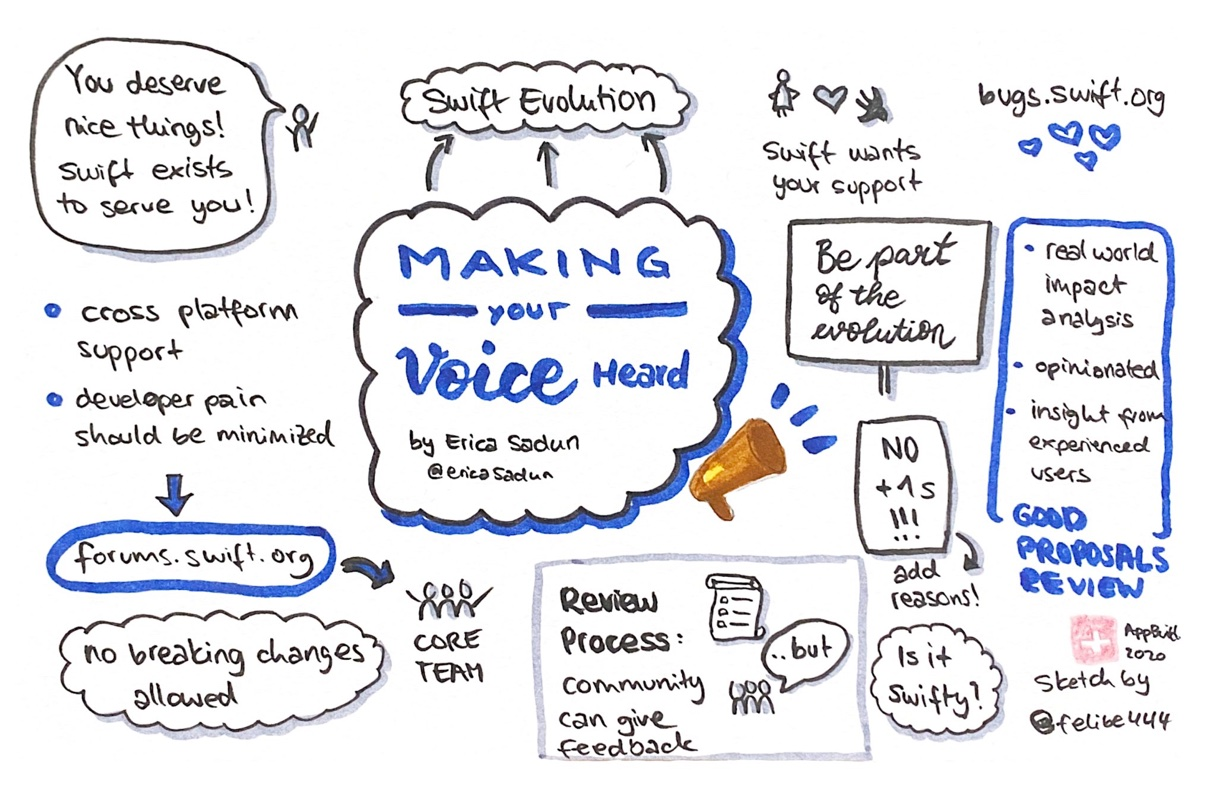 You deserve
nice things!
Swift exists
to serve you!
Swift Evolution
Swift wants
your support
bugs.swift.org
MAKING
your
Voice Heard
by Erica Sadun
@ericaSadun
cross platform
support
developer pain
should be minimized
forums.swift.org
no breaking changes
allowed
CORE
TEAM
Be part
of the
evolution
real world
impact
analysis
opinionated
insight from
experienced
users
GOOD
PROPOSALS
REVIEW
NO
+1s
!!!
add
reasons!
Review
Process:
community
can give
feedback
..but
Is it
swifty?
AppBuild
2020
Sketch by
@felibe444